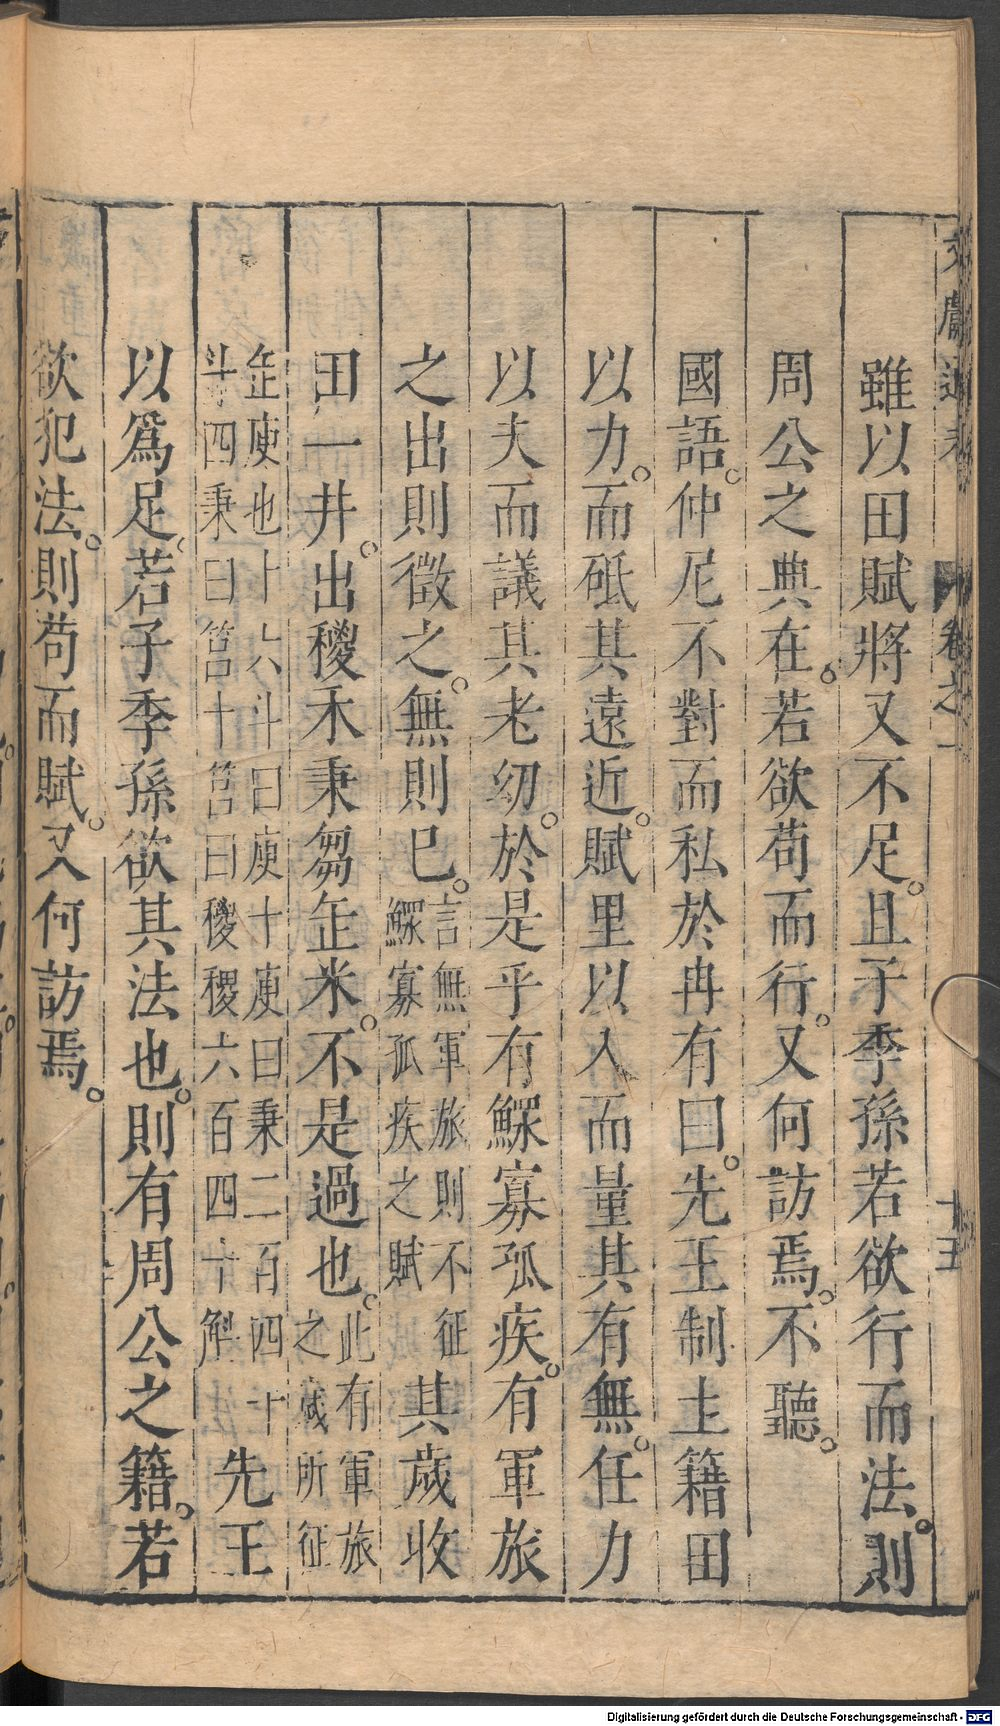 文獻通考 卷之一 十五
雖以田賦將又不足。且子季孫若欲行而法。則
周公之典在。若欲苟而行。又何訪焉。不聽。
國語。仲尼不對而私於冉有曰。先王制土籍田
以力。而砥其遠近。賦里以入而量其有無。任力
以夫而議其老幼。於是乎有鰥寡孤疾。有軍旅
之出則徵之。無則已。言無軍旅則不征鰥寡孤疾之賦其歲收
田一井。出稯禾秉芻缶米。不是過也。此有軍旅之歲所征
缶庾也十六斗曰庾十庾曰秉二百四十斗四秉曰筥十筥曰稯稯六百四十斛先王
以爲足。若子季孫欲其法也。則有周公之籍。若
欲犯法。則苟而賦。又何訪焉。
Digitalisierung gefördert durch die Deutsche Forschungsgemeinschaft - DFG